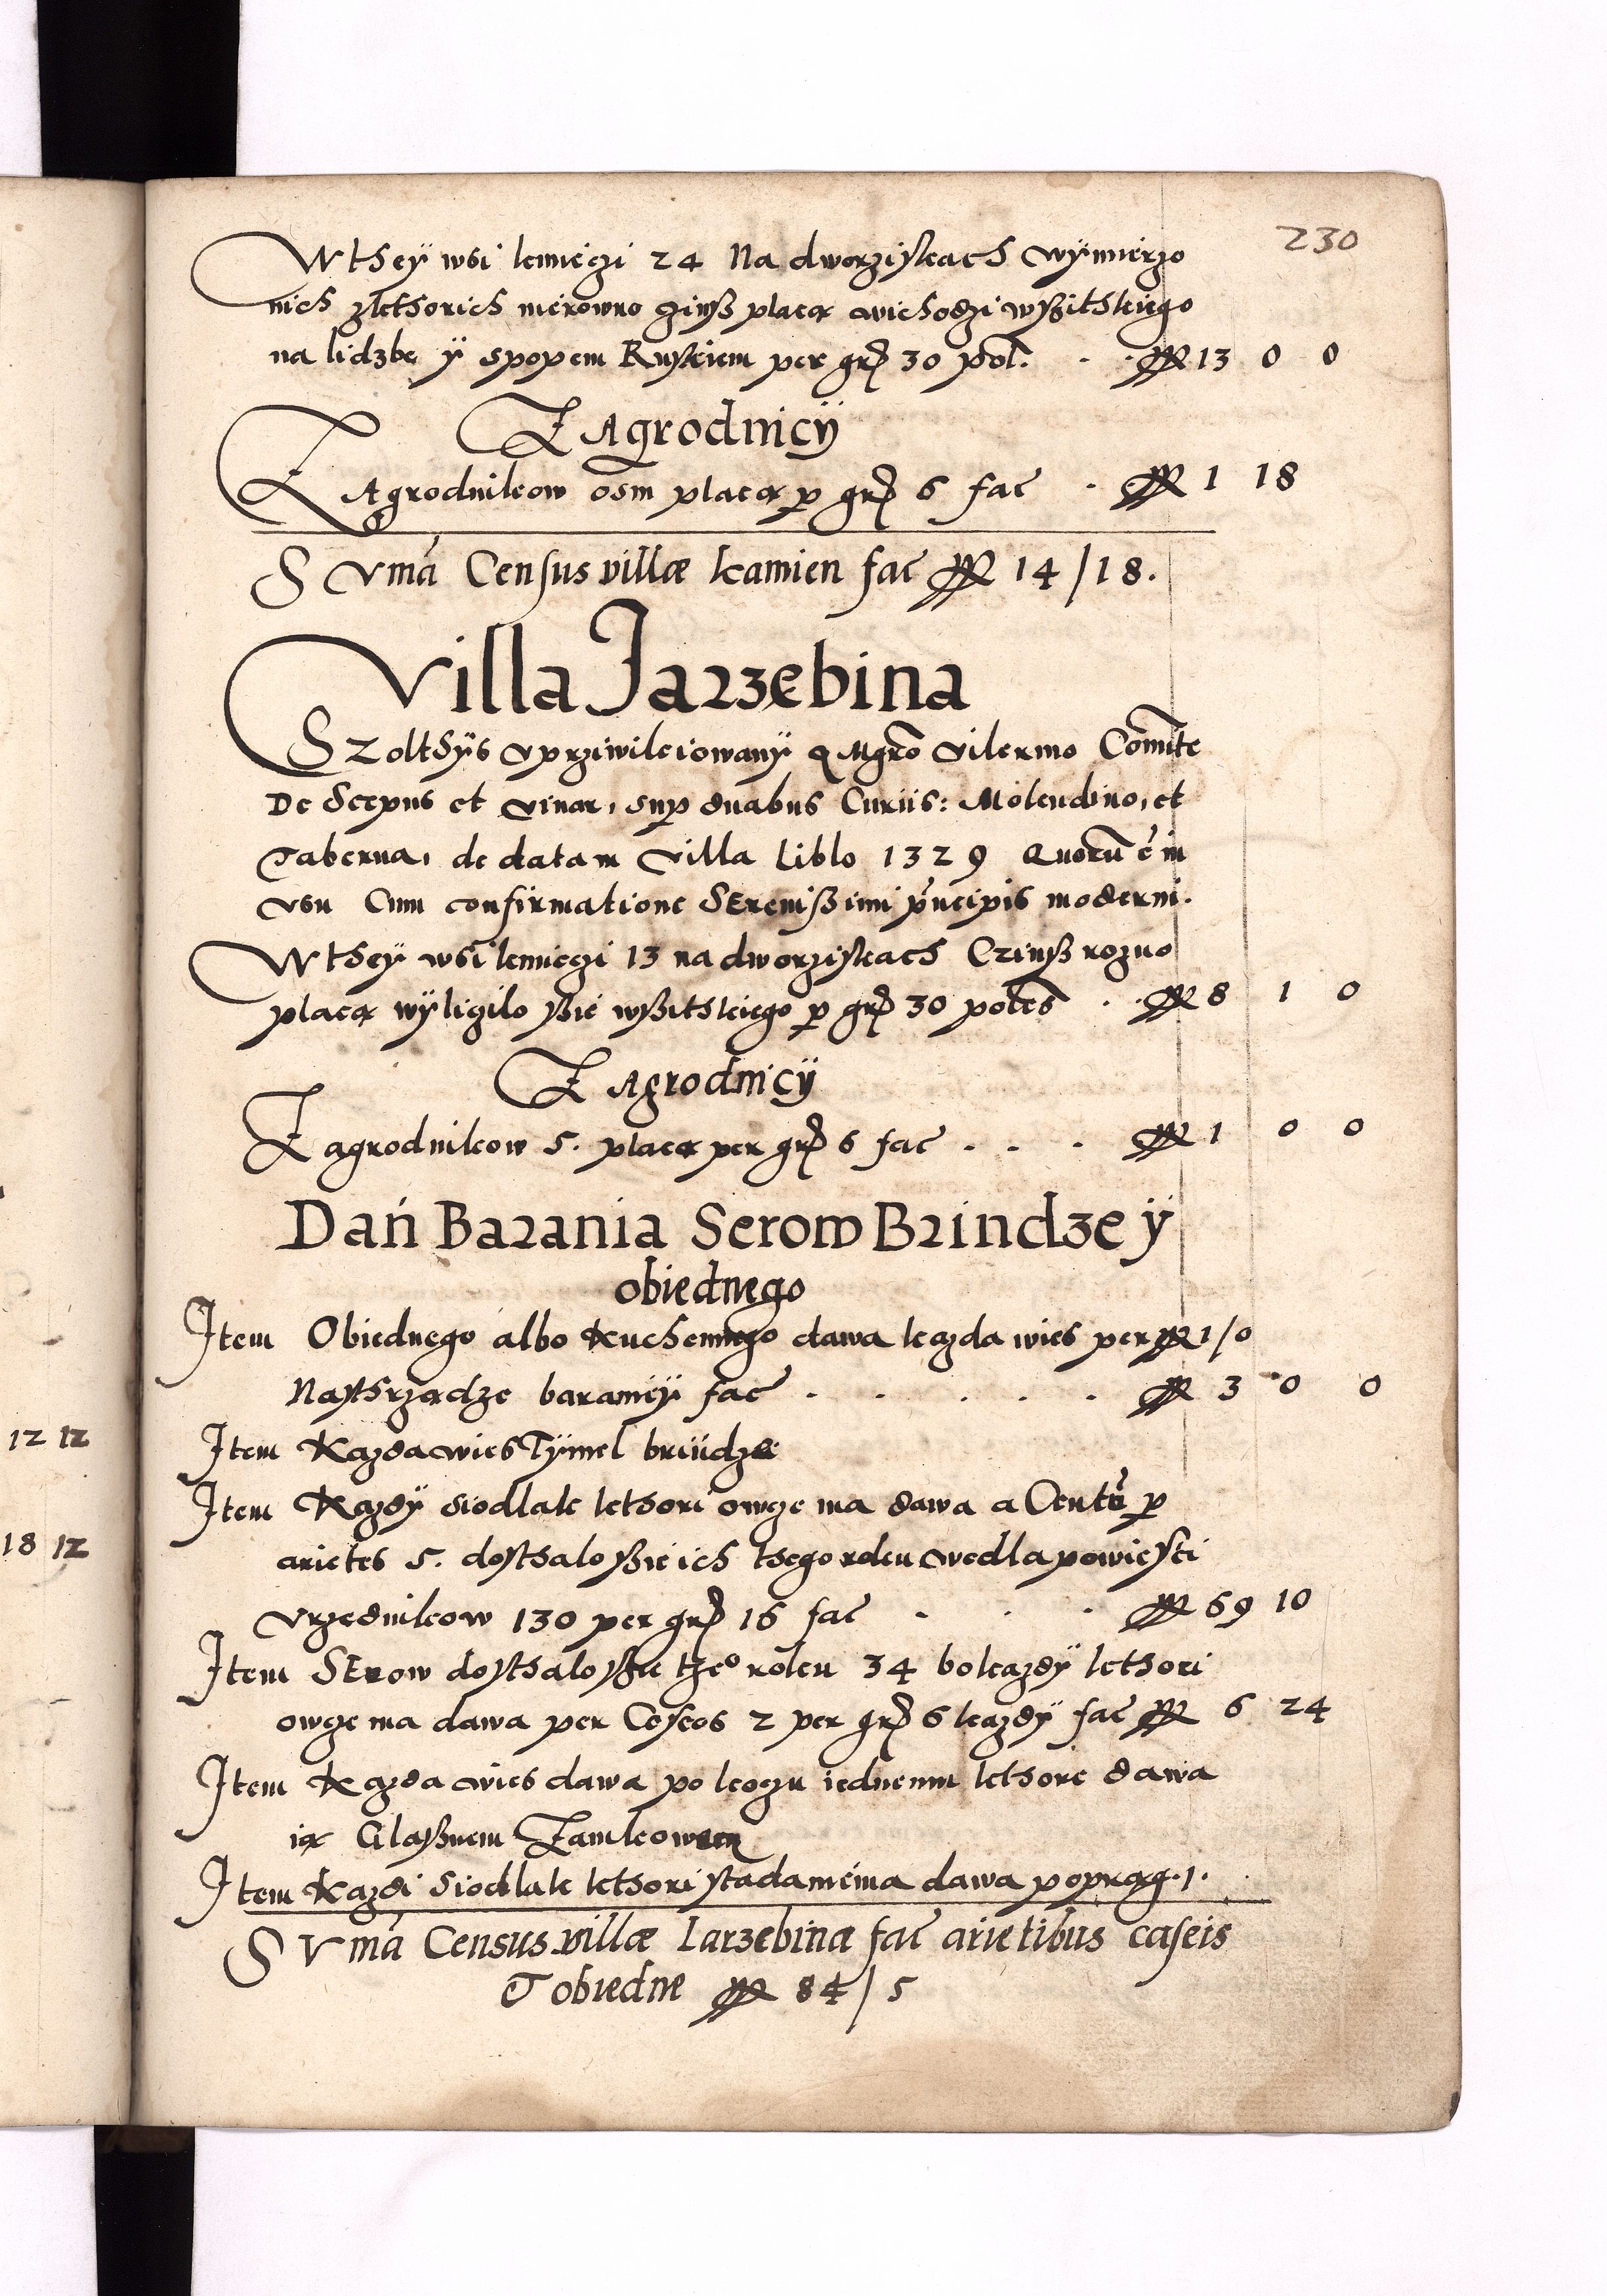 230
W they wsi kmieczi 24 Na dworziskach wymierzo
nich z kthorich nierowno czinß placą wichodzi wßitskiego
na lidzbę y s popem Ruskiem per grͦ 30 pol. . . 13 0 0
ZAgrodnicÿ
ZAgrodnikow osm placą p grͦ 6 fac . 1 18
SVma Census villæ kamien fac 14/18.
Villa Jarzębina
Szolthÿs vprziwileiowanÿ a Mgco Vilermo Comite
De Scepus et Vivar, sup duabus Curiis: Molendino, et
Taberna, de data in Villa liblo 1329 Quorum e in
vsu Cum confirmatione SEreniß imi principis moderni.
W theÿ wsi kmieczi 13 na dworziskach Czinß rozno
placą wÿliczilo ßie wßitskiego p grͦ 30 poles . . 8 1 0
ZAgrodnicÿ
Zagrodnikow 5. placą per grͦ 6 fac . . . 1 0 0
Dań Barania Serow Brindze ÿ
obiednego
Item Obiednego albo kuchennego dawa kazda wies per 1/0
Nasthrzadze baraniey fac . . . . . 3 0 0
Item Kazda wies Tÿmel brindze
Item Kazdÿ siodlak kthori owcze ma dawa a Cent p
arietes 5. dosthalo ßie ich thego roku wedla powiesci
Vrzednikow 130 per grͦ 16 fac . . . 69 10
Item SErow dosthalo ßie tgeº roku 34 bo kazdÿ kthori
owcze ma dawa per Caseos 2 per grͦ 6 kazdÿ fac 6 24
Item Kazda wies dawa po koczu iednemu kthore dawa
ią Glaßnem Zamkowem
Item Kazdi Siodlak kthori stada nie ma dawa po prągg. 1.
SVma Census villæ Iarzebina fac arietibus caseis
Et obiedne 84/5
12 12
18 12